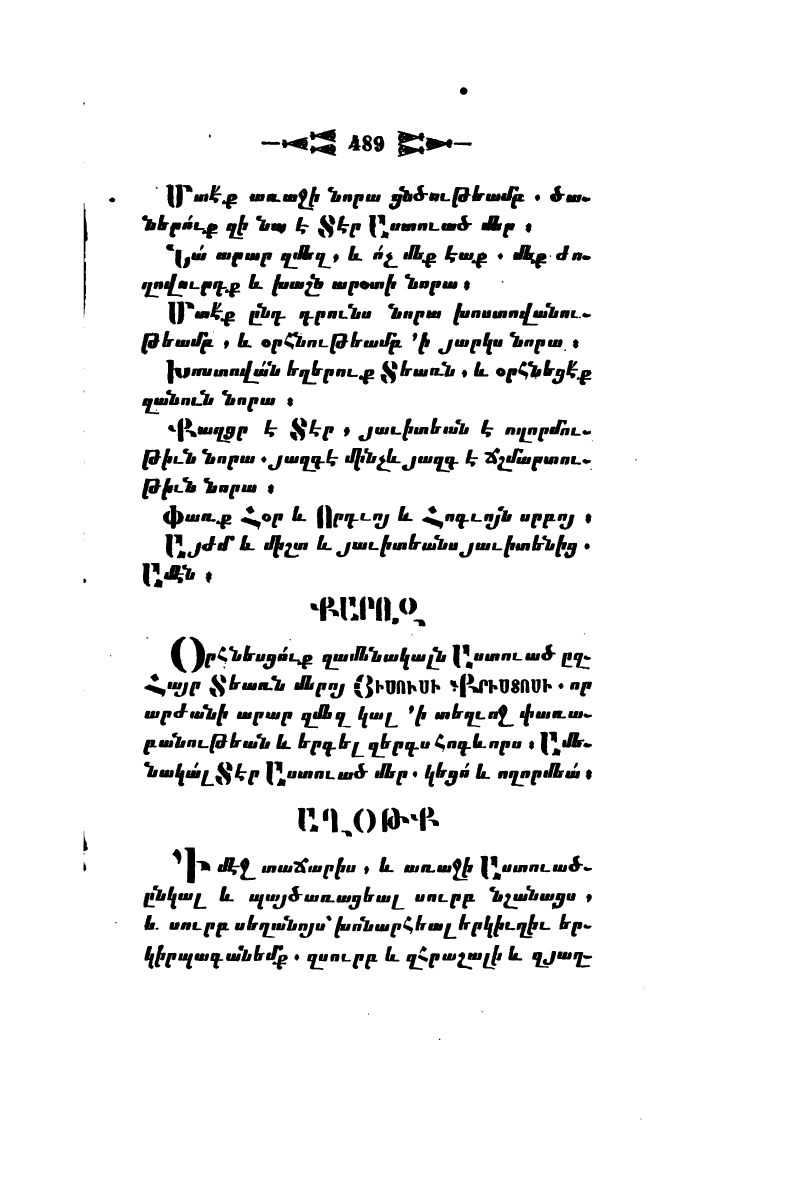 489
Մտէ՛ք առաջի նորա ցնծութեամբ. ծա-
ներո՛ւք զի նա է Տէր Աստուած մեր :
Նա՛ արար զմեզ, և ո՛չ մեք էաք. մեք ժո-
ղովուրդք և խաշն արօտի նորա :
Մտէ՛ք ընդ դրունս նորա խոստովանու-
թեամբ, և օրհնութեամբ ՚ի յարկս նորա :
Խոստովա՛ն եղերուք Տեառն, և օրհնեցէ՛ք
զանուն նորա :
Քաղցր է Տէր, յաւիտեան է ողորմու-
թիւն նորա. յազգէ մինչև յազգ է ճշմարտու-
թիւն նորա :
Փառք Հօր և Որդւոյ և Հոգւոյն սրբոյ :
Այժմ և միշտ և յաւիտեանս յաւիտենից.
Ամէն :
ՔԱՐՈԶ
Օրհնեսցո՛ւք զամենակալն Աստուած ըզ-
Հայր Տեառն մերոյ ՅԻՍՈՒՍԻ ՔՐԻՍՏՈՍԻ. որ
արժանի արար զմեզ կալ ՚ի տեղւոջ փառա-
բանութեան և երգել զերգս հոգևորս : Ամե-
նակա՛լ Տէր Աստուած մեր. կեցո՛ և ողորմեա՛ :
ԱՂՕԹՔ
Ի մէջ տաճարիս, և առաջի Աստուած-
ընկալ և պայծառացեալ սուրբ նշանացս,
և սուրբ սեղանոյս՝ խոնարհեալ երկիւղիւ եր-
կիրպագանեմք. զսուրբ և զհրաշալի և զյաղ-